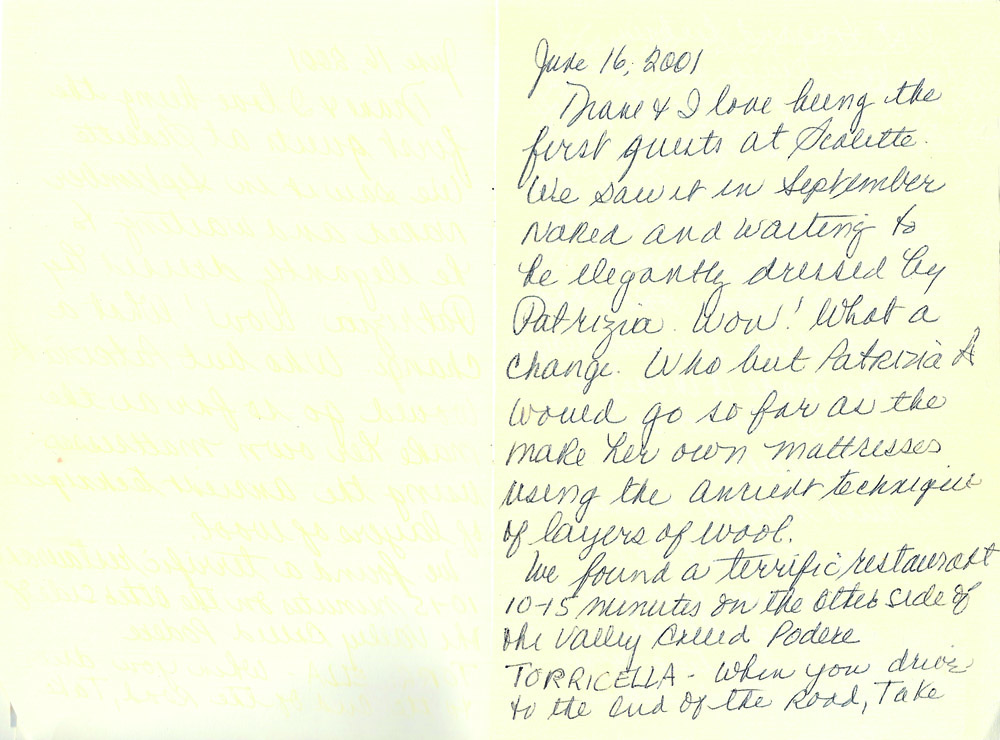 June 16, 2001
Diane & I love being the
first guests at Scalette.
We saw it in September
naked and waiting to
be elegantly dressed by
Patrizia. Wow! What a
change. Who but Patrizia
would go so far as the
make her own mattresses
using the ancient technique
of layers of wool.
We found a terrific restaurant
10-15 minutes on the other side of
the valley called Podere
TORRICELLA - When you drive
to the end of the road, Take